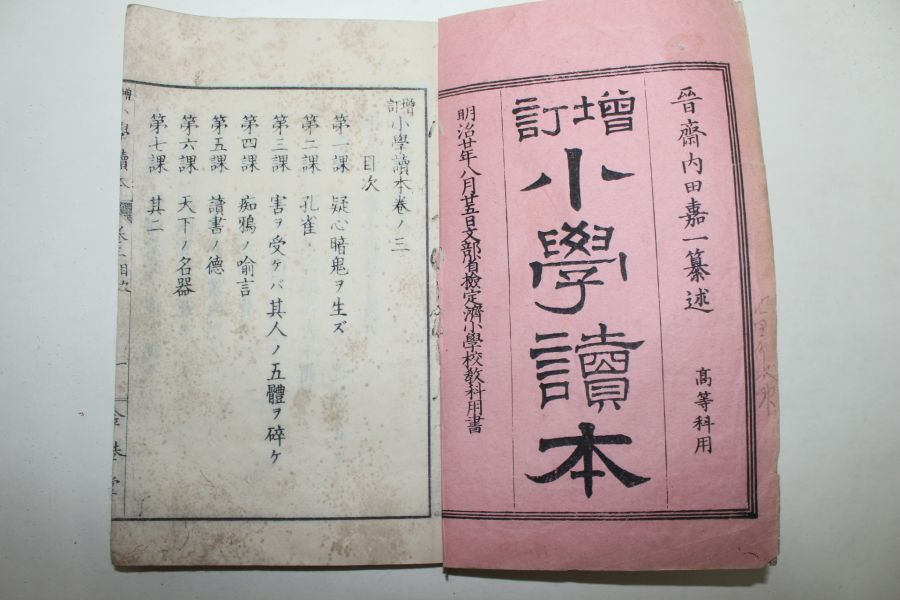 晉齋內田嘉一纂述
高等科用
增訂
小學讀本
明治廿年八月廿五日文部省檢定濟小學校敎科用書
增訂小學讀本卷ノ三
目次
第一課 疑心暗鬼ヲ生ズ
第二課 孔雀
第三課 害ヲ受ケバ其人ノ五體ヲ碎ケ
第四課 痴鴉ノ喻言
第五課 讀書ノ德
第六課 天下ノ名器
第七課 其二